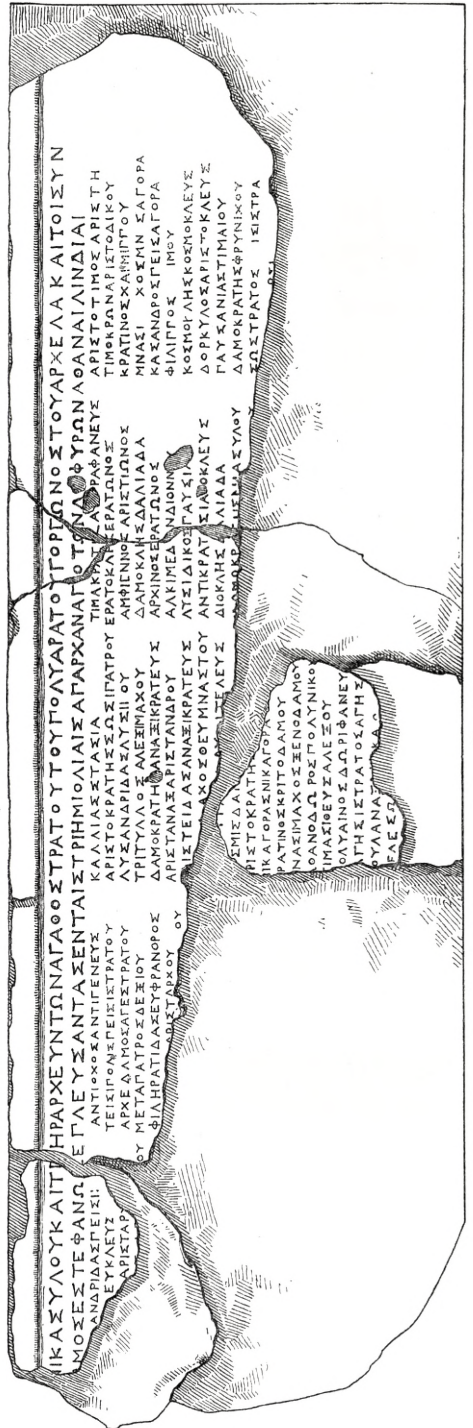 ΙΚΑΣΥΛΟΥΚΑΙΤΡ ΗΡΑΡΧΕΥΝΤΩΝΑΓΑΘΟΣΤΡΑΤΟΥΤΟΥΠΟΛΥΑΡΑΤΟΥΓΟΡΓΩΝΟΣΤΟΥΑΡΧΕΛΑΚΑΙΤΟΙΣΥΝ
ΜΟΣΕΣΤΕΦΑΝΩ ΕΠΛΕΥΣΑΝΤΑΣΕΝΤΑΙΣΤΡΙΗΜΙΟΛΙΑΙΣΑΠΑΡΧΑΝΑΠΟΤΩΝΛΑΦΥΡΩΝΑΘΑΝΑΙΛΙΝΔΙΑΙ
ΑΝΔΡΙΔΑΣΠΕΙΣΙ
ΕΥΚΛΕΥΣ
ΑΡΙΣΤΑΡ
ΑΝΤΙΟΧΟΣΑΝΤΙΓΕΝΕΥΣ
ΤΕΙΣΙΠΟΛΙΣΠΕΙΣΙΣΤΡΑΤΟΥ
ΑΡΧΕΔΑΜΟΣΑΓΕΣΤΡΑΤΟΥ
ΟΥ ΜΕΤΑΠΑΤΡΟΣΔΕΞΙΟΥ
ΦΙΛΗΡΑΤΙΔΑΣΕΥΦΡΑΝΟΡΟΣ
ΑΡΙΣΤΑΡΧΟΥ ΟΥ
ΚΑΛΛΙΑΣΣΤΑΣΙΑ
ΑΡΙΣΤΟΚΡΑΤΗΣΣΩΣΙΠΑΤΡΟΥ
ΛΥΣΑΝΔΡΙΔΑΣΛΥΣ ΟΥ
ΤΡΙΤΥΛΛΟΣΑΛΕΞΙΜΑΧΟΥ
ΔΑΜΟΚΡΑΤΗ ΑΝΑΞΙΚΡΑΤΕΥΣ
ΑΡΙΣΤΑΝΑΞΑΡΙΣΤΑΝΔΡΟΥ
ΡΙΣΤΕΙΔΑΣΑΝΑΞΙΚΡΑΤΕΥΣ
ΑΧΟΣΘΕΥΜΝΑΣΤΟΥ
ΤΕΛΕΥΣ
ΣΜΙΣΔΑ
ΡΙΣΤΟΚΡΑΤΗ
ΙΚΑΓΟΡΑΣΝΙΚΑΓΟΡΑ
ΡΑΤΙΝΟΣΚΡΙΤΟΔΑΜΟΥ
ΝΑΣΙΜΑΧΟΣΞΕΝΟΔΑΜΟΥ
ΟΑΝΟΔΩΡΟΣΠΟΛΥΝΙΚΟ
ΙΜΑΣΙΘΕΥΣΑΛΕΞΟΥ
ΟΛΥΑΙΝΟΣΔΩΡΙΦΑΝΕΥ
ΑΤΗΣΙΣΤΡΑΤΟΣΑΓΗΣ
ΟΥΛΑΝΑΤ
ΤΙΜΑΚΡΑΤ ΡΑΦΑΝΕΥΣ
ΕΡΑΤΟΚΛΗ ΕΡΑΤΩΝΟΣ
ΑΜΦΙΕΝΝΟΣΑΡΙΣΤΙΩΝΟΣ
ΔΑΜΟΚΛΗΣΔΑΛΙΑΔΑ
ΑΡΧΙΝΟΣΕΡΑΤΩΝΟΣ
ΑΛΚΙΜΕΔΩΝΔΙΟΝΝ
ΛΥΣΙΔΙΚΟΣΠΑΥΣΙΑ
ΑΝΤΙΚΡΑΤ ΣΙΑ ΟΚΛΕΥΣ
ΔΙΟΚΛΗΣ ΑΛΙΑΔΑ
ΑΣΥΛΟΥ
ΑΡΙΣΤΟΤΙΜΟΣΑΡΙΣΤΗ
ΤΙΜΟΚΡΩΝΑΡΙΣΤΟΔΙΚΟΥ
ΚΡΑΤΙΝΟΣΧΑΡΜΙΠΠΟΥ
ΜΝΑΣΙ ΧΟΣΜΝ ΣΑΓΟΡΑ
ΚΑΣΑΝΔΡΟΣΠΕΙΣΑΓΟΡΑ
ΦΙΛΙΠΠΟΣ ΙΜΟΥ
ΚΟΣΜΟΚΛΗΣΚΟΣΜΟΚΛΕΥΣ
ΔΟΡΚΥΛΟΣΑΡΙΣΤΟΚΛΕΥΣ
ΠΑΥΣΑΝΙΑΣΤΙΜΑΙΟΥ
ΔΑΜΟΚΡΑΤΗΣΦΡΥΝΙΧΟΥ
ΣΩΣΤΡΑΤΟΣ ΙΣΙΣΤΡΑ